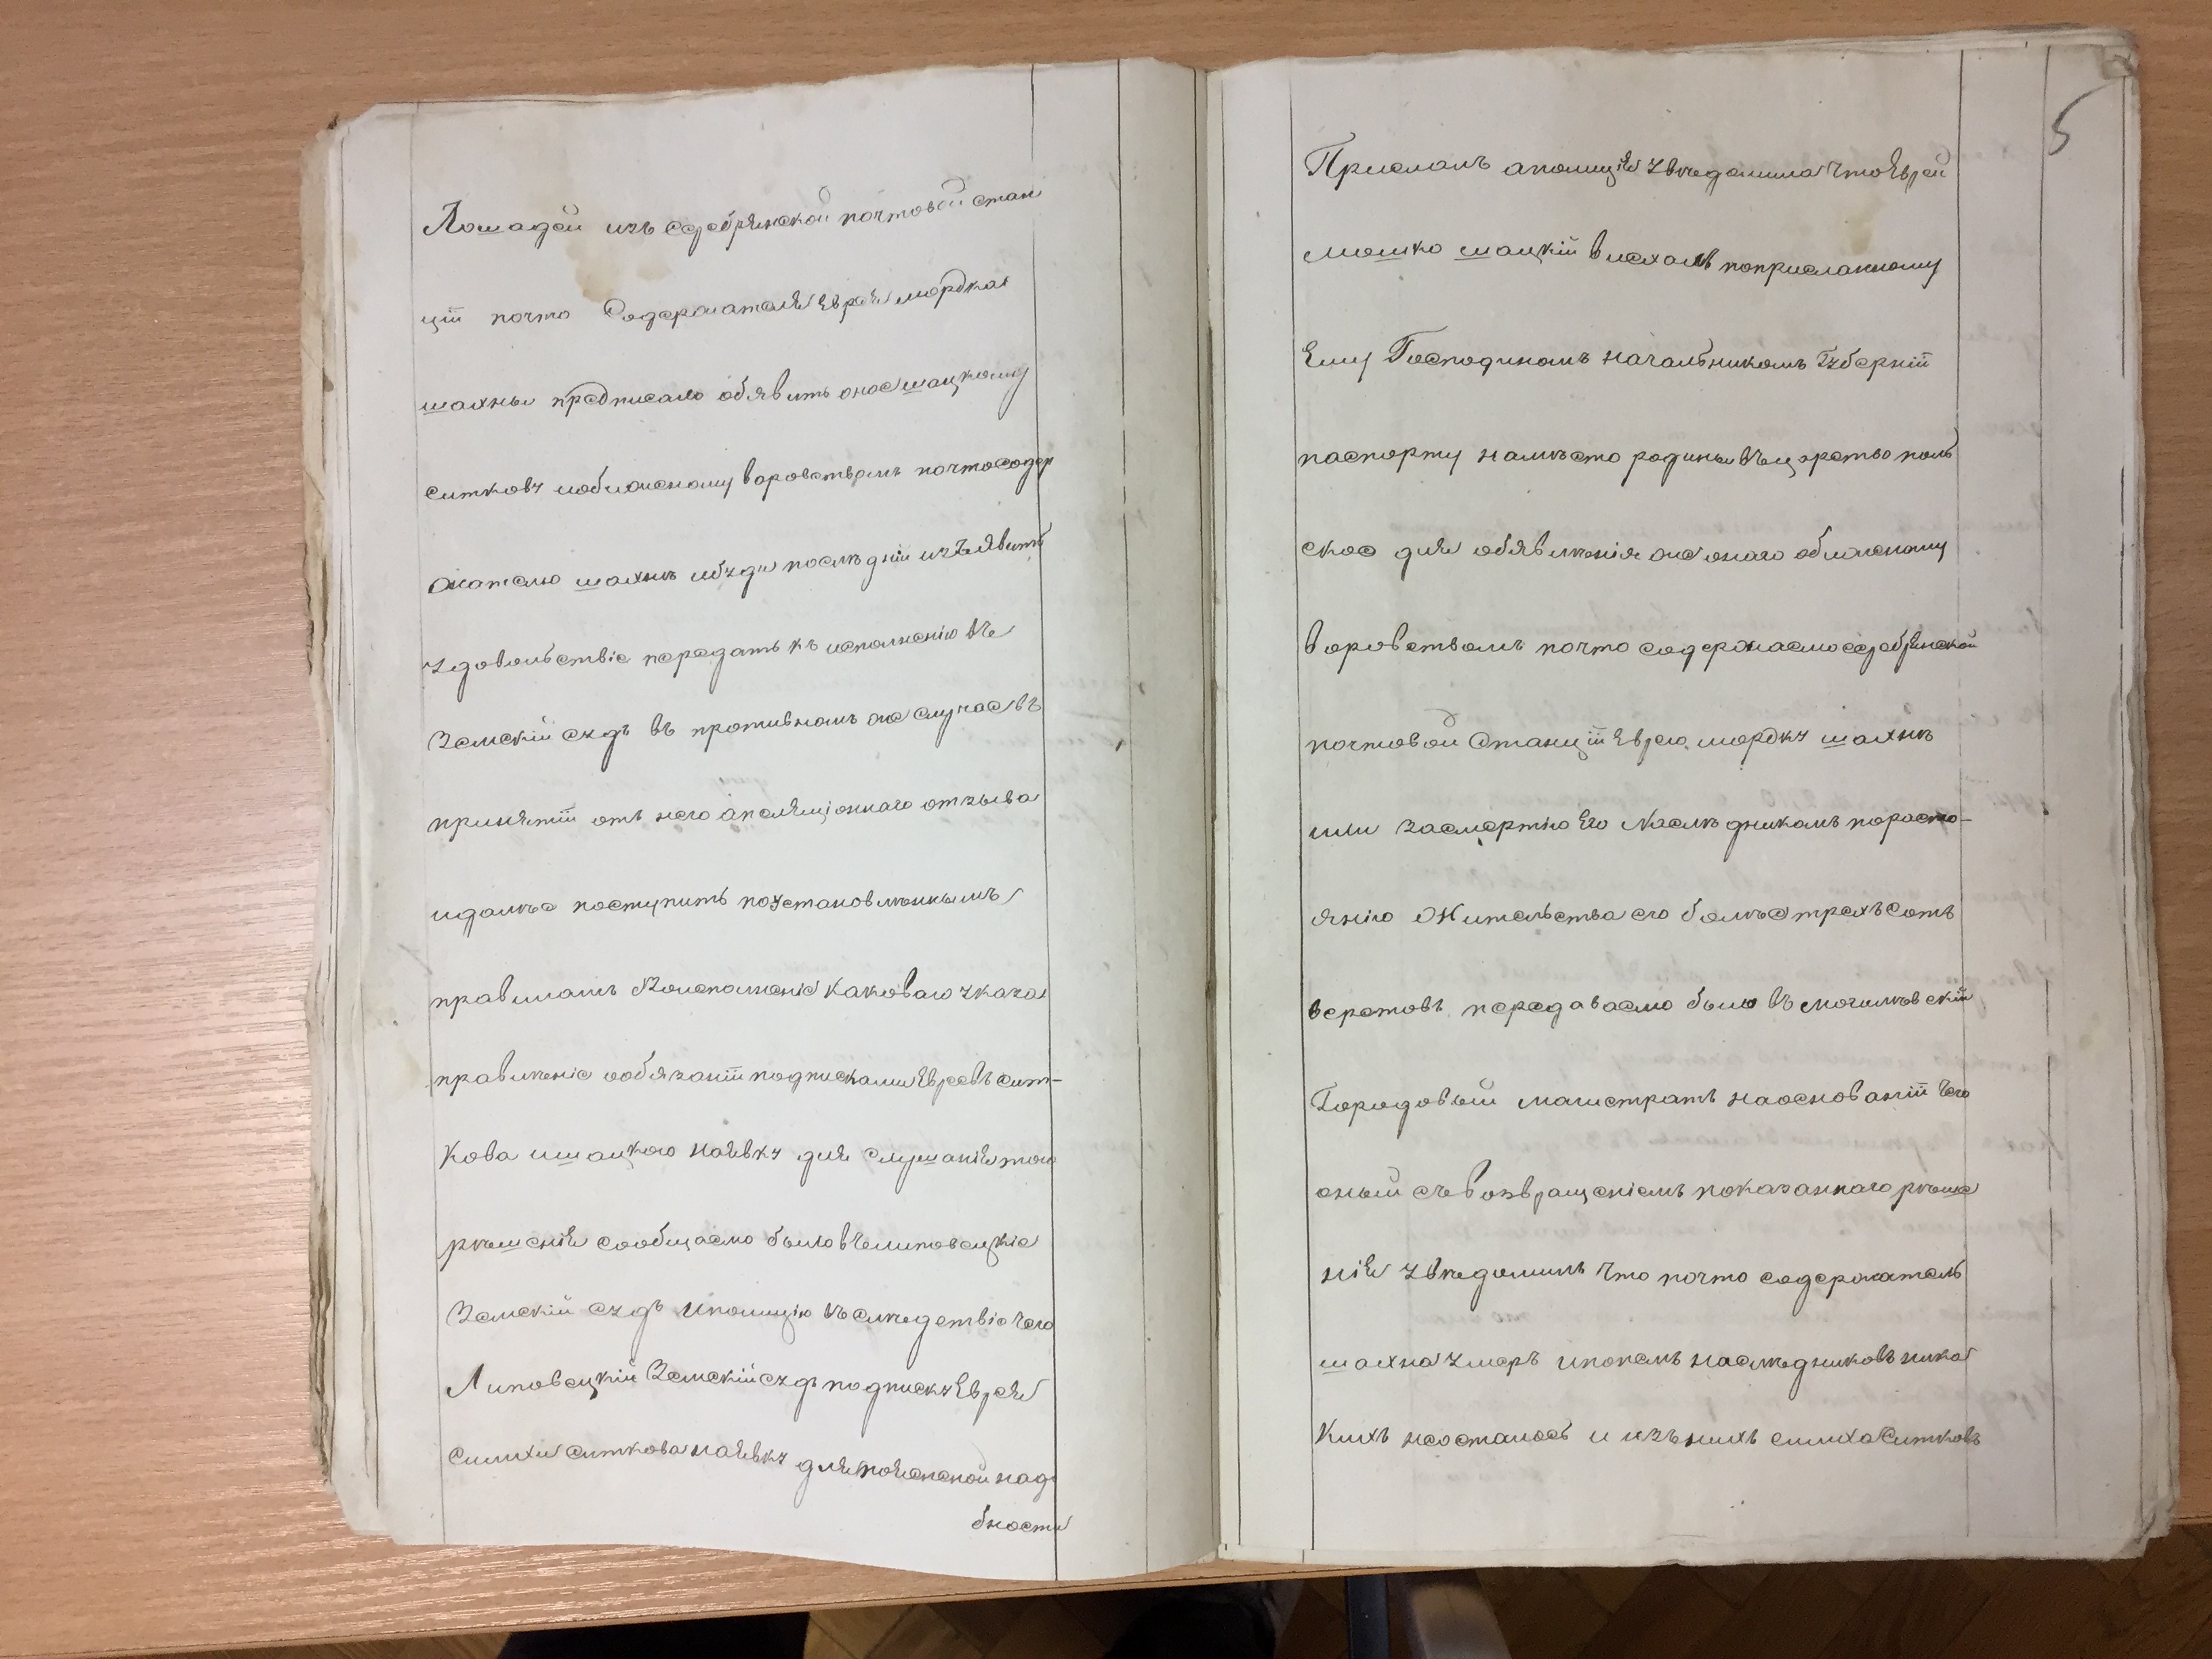 Лошадей изъ серебрянской почтовой стан
ціи почто Содержателя Еврея мордка
шахны предписало объявить оное шацкому
ситкову иобиженному воровствомъ почтосодер
жателю шахнѣ ибуди послѣдній изъявитъ
удовольствіе передать къ исполненію въ
Земскій судъ въ противномъ же случае въ
принятіи отъ него апеляціоннаго отзыва
идалѣе поступить поустановлѣннымъ
правиламъ Воисполненіе каковаго указа
правленіе ообязаніи подписками Евреевъ сит-
кова ишацкого наявку для слушанія того
рѣшенія сообщаемо было въ липовецкіе
Земскій судъ иполицію въ слѣдствіе чего
Липовецкій Земскій судъ подписку Еврея
симхи ситкова наявку для поясненой надо
бности
5
Прислалъ аполиція увѣдомила что Еврей
мошко шацкій выехалъ поприсланному
Ему Господиномъ начальникомъ Губерніи
паспорту намѣсто родины въ царство поль
ское для объявленія же онаго обиженному
воровствомъ почто содержаемо серебрянской
почтовой Станціи Еврею мордку шахнѣ
или засмертію Его Наслѣдникамъ порасто-
янію Жительства его болѣе трехъ сотъ
верстовъ передаваемо было въ могилѣвскій
Городовый магистратъ наоснованіи чего
оный съ возвращеніемъ показаннаго рѣше
нія увѣдомилъ что почто содержатель
шахна умеръ ипонемъ наслѣдниковъ ника
кихъ неосталось и изъ нихъ симха Ситковъ